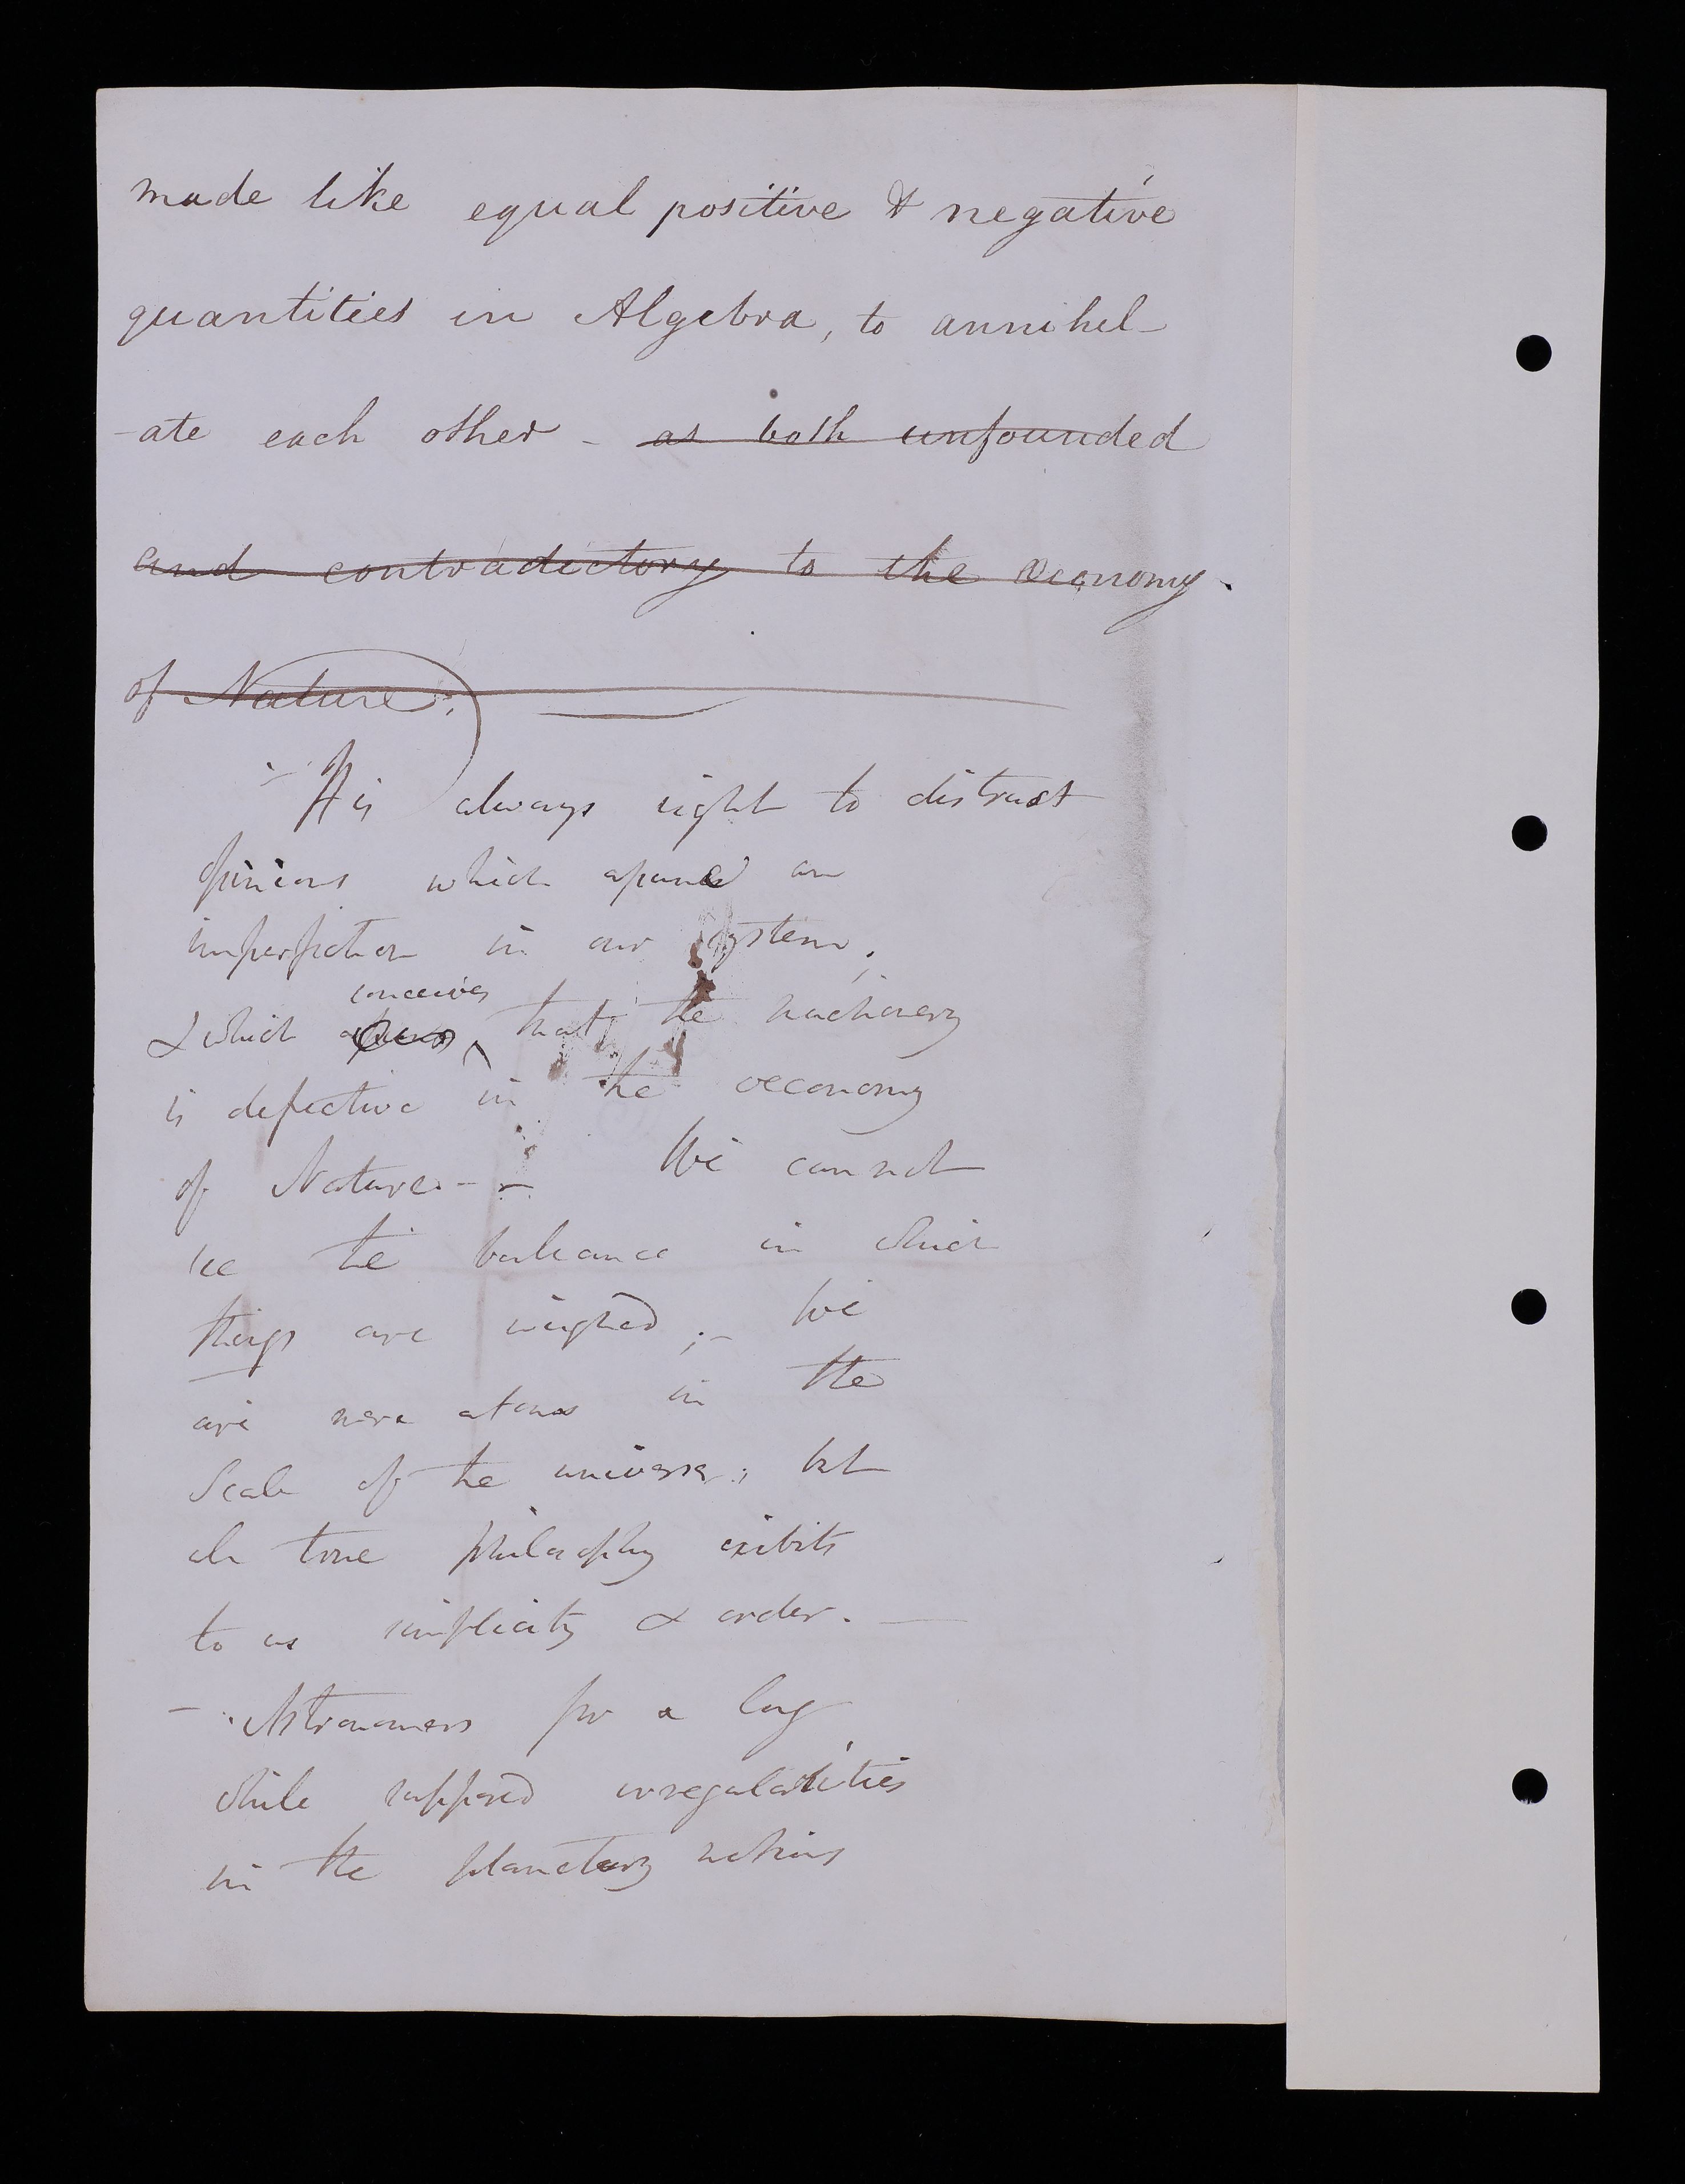 made like equal positive & negative
quantities in Algebra, to annihel-
-ate each other - as both unfounded
and contradictory to the œconomy.
of Nature.;
- It is always right to distrust
opinions which an
imperfection in our system;
conceives
& which that the machinery
is defective in the oeconomy
of Nature. - - We cannot
see the balleance in which
things are weighed;- We
are mere atoms in the
Scale of the universe; but
all true philosophy exibits
to us simplicity & order. —
- Astronomers for a long
while supposed irregularities
in the planetary motions